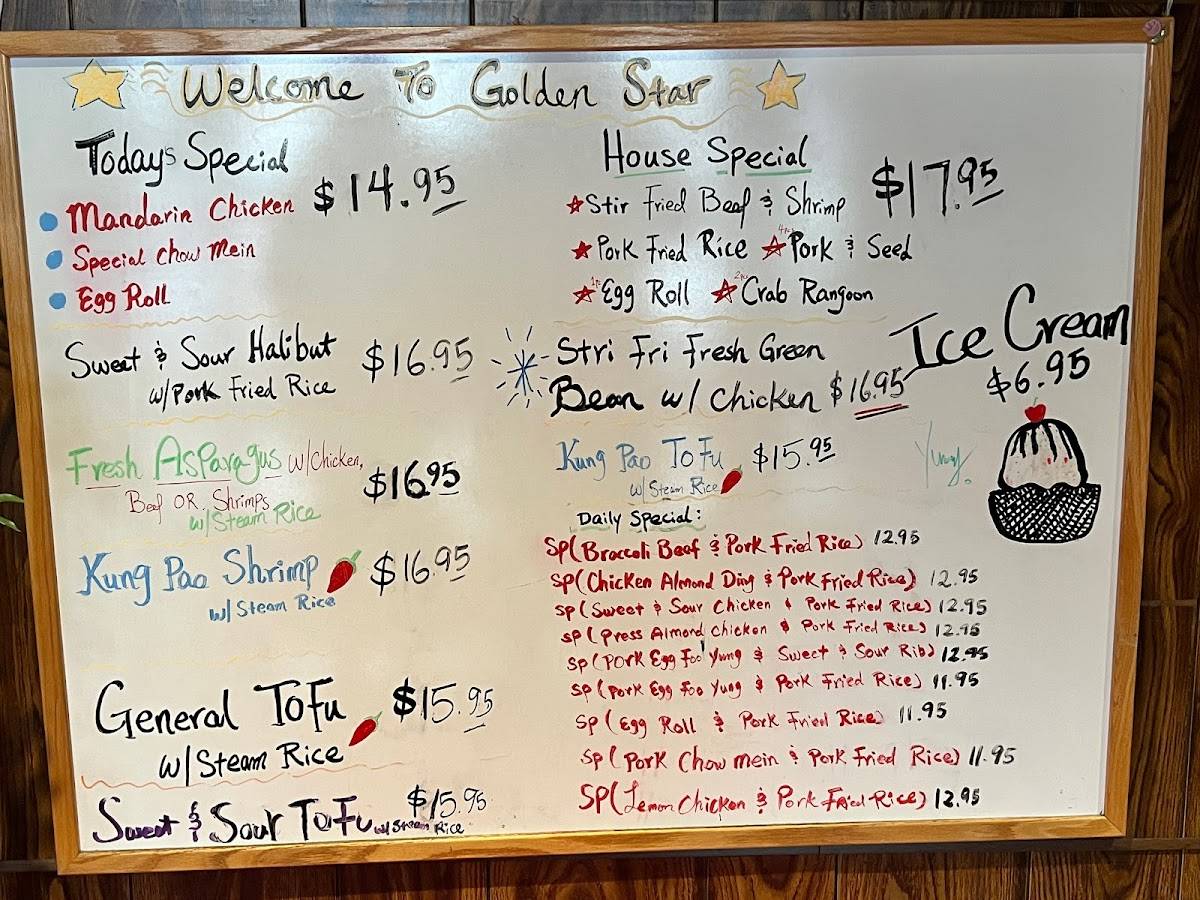 Welcome To Golden Star
Todays Special
$14.95
Mandarin Chicken
Special Chow Mein
Egg Roll
Sweet & Sour Halibut
w/Pork Fried Rice
$16.95
Fresh Asparagus w/Chicken,
Beef OR Shrimps
w/Steam Rice
$16.95
Kung Pao Shrimp
w/Steam Rice
$16.95
General ToFu
w/Steam Rice
$15.95
Sweet & Sour ToFu w/Steam Rice
$15.95
House Special
$17.95
Stir Fried Beef & Shrimp
Pork Fried Rice 4pc Pork & Seed
1pc Egg Roll 2pc Crab Rangoon
Stri Fri Fresh Green
Bean w/ Chicken $16.95
Ice Cream
$6.95
Yummy
Kung Pao ToFu $15.95
w/Steam Rice
Daily Special:
SP(Broccoli Beef & Pork Fried Rice) 12.95
SP(Chicken Almond Ding & Pork Fried Rice) 12.95
SP(Sweet & Sour Chicken & Pork Fried Rice) 12.95
SP(Press Almond Chicken & Pork Fried Rice) 12.95
SP(Pork Egg Foo Yung & Sweet & Sour Rib) 12.95
SP(Pork Egg Foo Yung & Pork Fried Rice) 11.95
SP(Egg Roll & Pork Fried Rice) 11.95
SP(Pork Chow mein & Pork Fried Rice) 11.95
SP(Lemon Chicken & Pork Fried Rice) 12.95